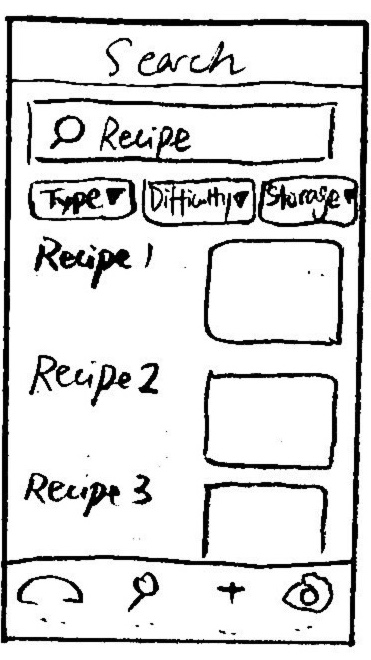 Search
Recipe
Type Difficulty Storage
Recipe 1
Recipe 2
Recipe 3